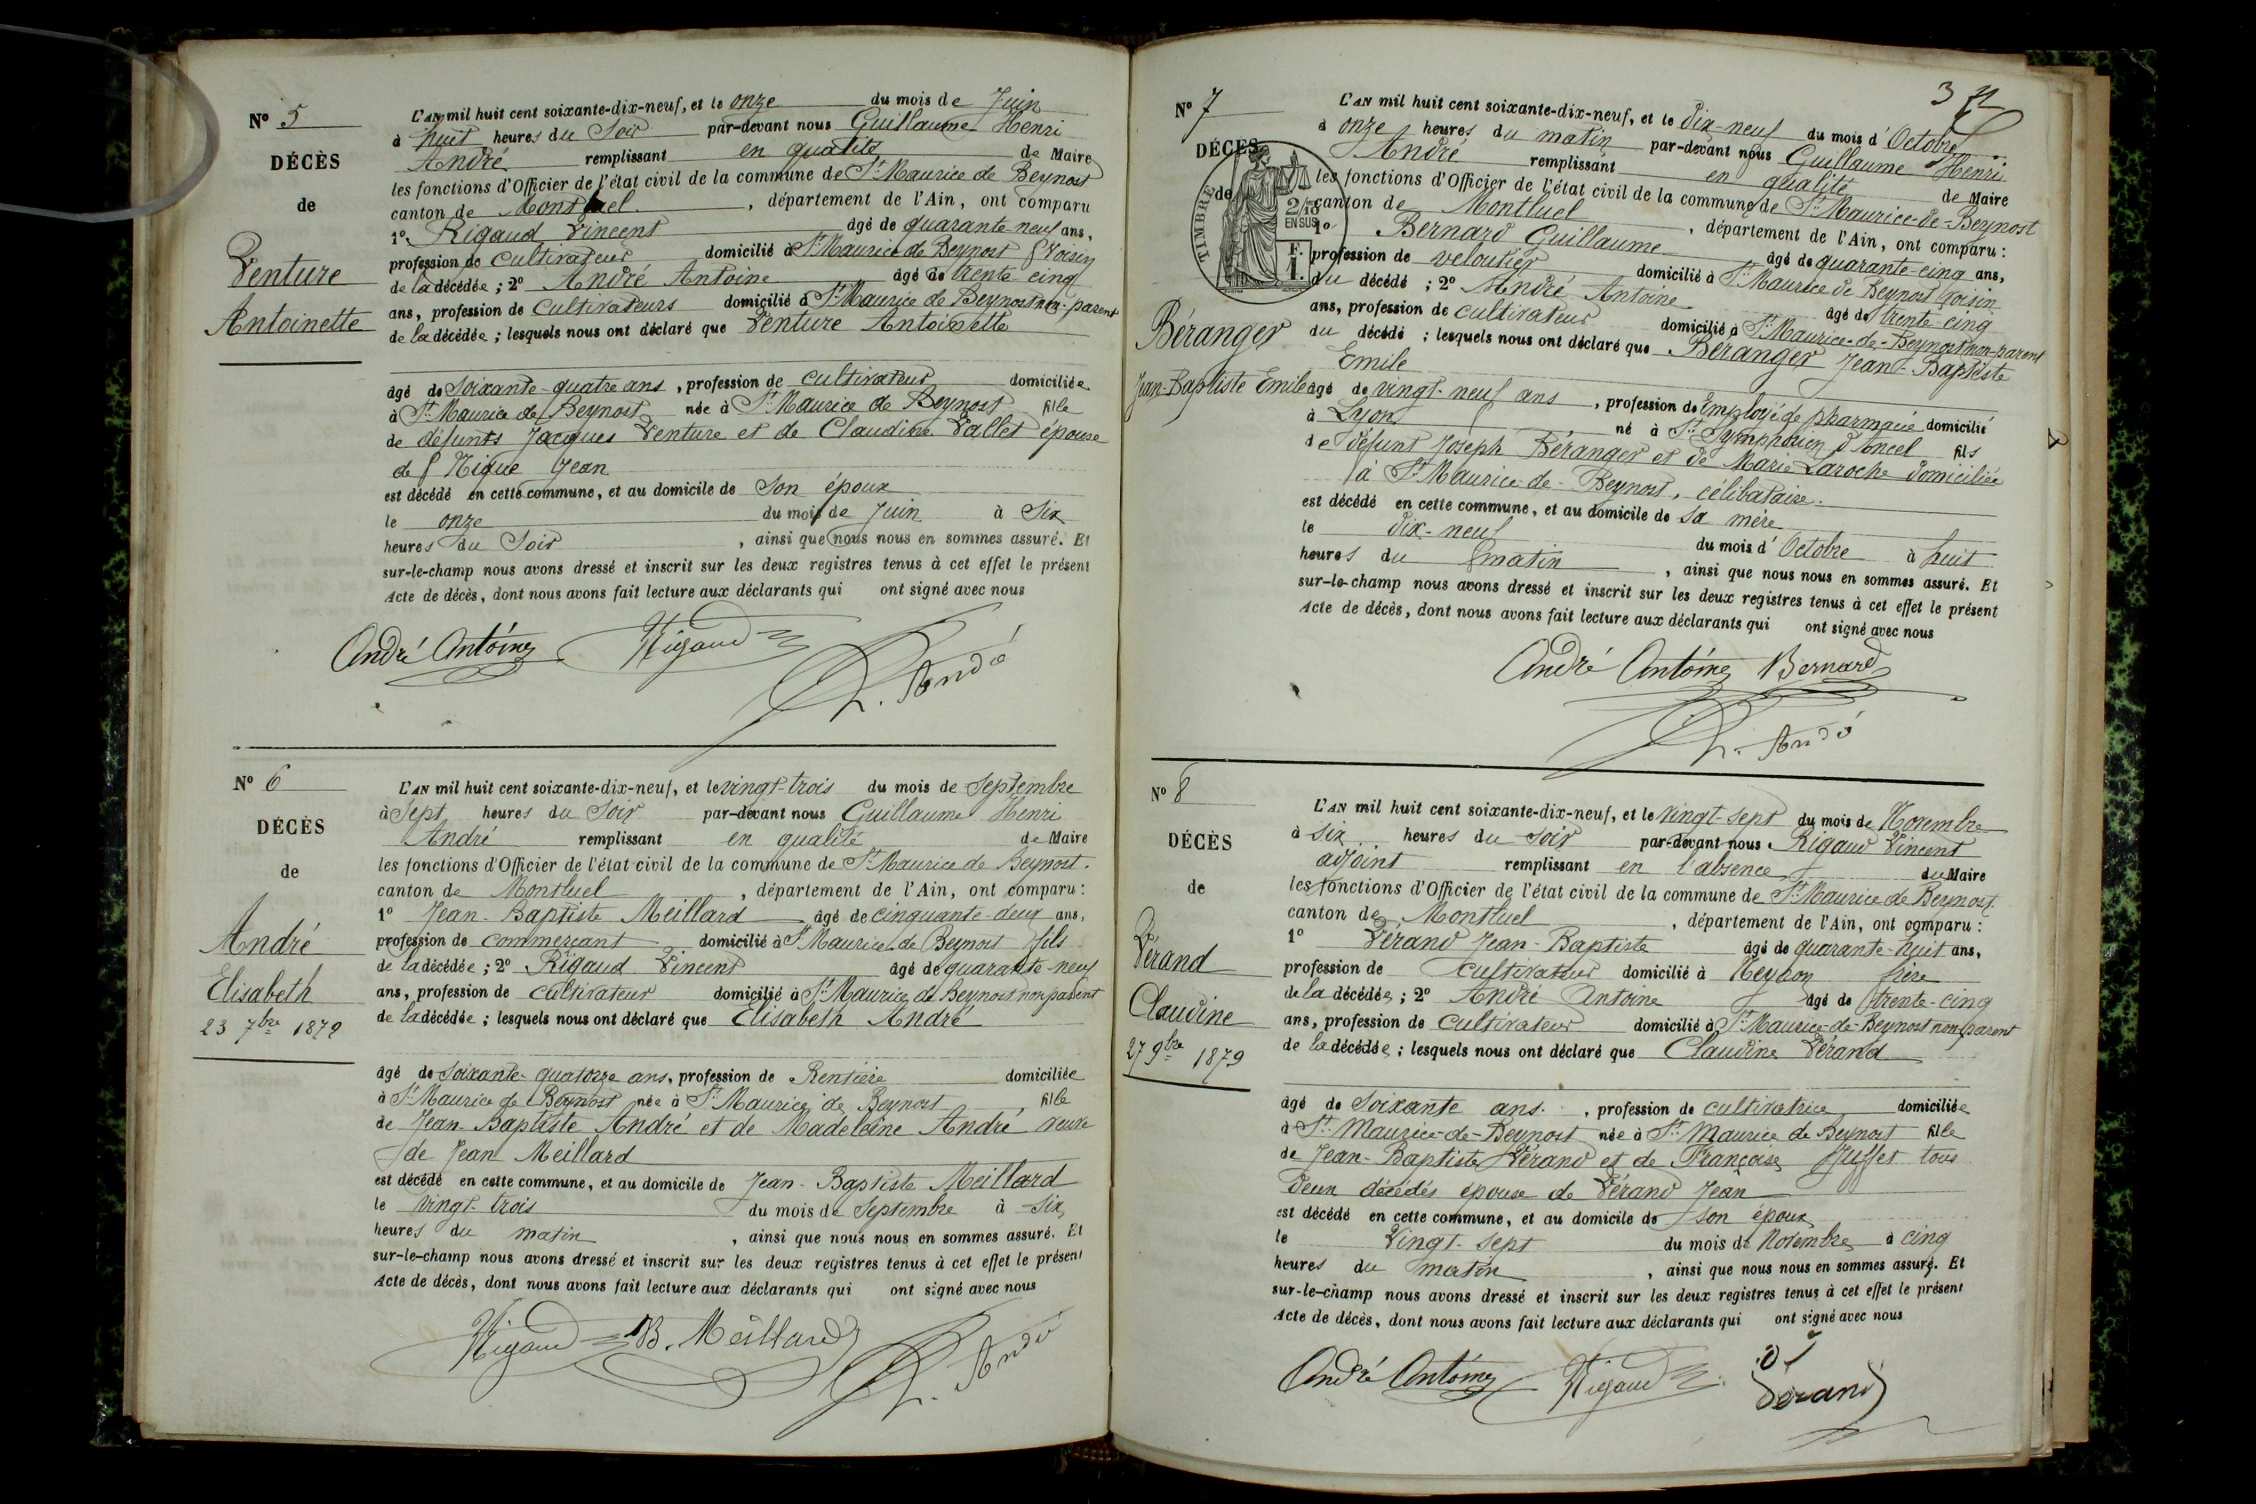 N° 5
DÉCÈS
de
Venture
Antoinette
L'AN mil huit cent soixante-dix-neuf, et le onze du mois de Juin
à huit heures du Soir par-devant nous Guillaume Henri
André remplissant en qualité de Maire
les fonctions d'Officier de l'état civil de la commune de St Maurice de Beynost
canton de Montluel, département de l'Ain, ont comparu
1° Rigaud Vincent âgé de quarante-neuf ans,
profession de cultivateur domicilié à St Maurice de Beynost Voisin
de la décédée; 2° André Antoine âgé de trente-cinq
ans, profession de Cultivateurs domicilié à St Maurice de Beynost non-parent
de la décédée; lesquels nous ont déclaré que Venture Antoinette
âgé de Soixante-quatre ans, profession de cultivateur domiciliée
à St Maurice de Beynost née à St Maurice de Beynost fille
de défunts Jacques Venture et de Claudine Vallet épouse
de Jean
est décédé en cette commune, et au domicile de Son époux
le onze du mois de Juin à Six
heures du Soir, ainsi que nous nous en sommes assuré. Et
sur-le-champ nous avons dressé et inscrit sur les deux registres tenus à cet effet le présent
Acte de décès, dont nous avons fait lecture aux déclarants qui ont signé avec nous
André Antoine Rigaud
h. André
N° 6
DÉCÈS
de
André
Elisabeth
23 7bre 1879
L'AN mil huit cent soixante-dix-neuf, et le vingt-trois du mois de Septembre
à Sept heures du Soir par-devant nous Guillaume Henri
André remplissant en qualité de Maire
les fonctions d'Officier de l'état civil de la commune de St Maurice de Beynost.
canton de Montluel, département de l'Ain, ont comparu:
1° Jean-Baptiste Meillard âgé de cinquante-deux ans,
profession de commerçant domicilié à St Maurice de Beynost fils
de la décédée; 2° Rigaud Vincent âgé de quarante-neuf
ans, profession de cultivateur domicilié à St Maurice de Beynost non parent
de la décédée; lesquels nous ont déclaré que Elisabeth André
âgé de soixante-quatorze ans, profession de Rentière domiciliée
à St Maurice de Beynost née à St Maurice de Beynost fille
de Jean Baptiste André et de Madeleine André veuve
de Jean Meillard
est décédé en cette commune, et au domicile de Jean-Baptiste Meillard
le vingt-trois du mois de Septembre à Six
heures du matin, ainsi que nous nous en sommes assuré. Et
sur-le-champ nous avons dressé et inscrit sur les deux registres tenus à cet effet le présent
Acte de décès, dont nous avons fait lecture aux déclarants qui ont signé avec nous
Rigaud JB. Meillard
h. André
3
N° 7
DÉCÈS
de
TIMBRE
2/10
EN SUS
F.
1.
Béranger
Jean-Baptiste Emile
L'AN mil huit cent soixante-dix-neuf, et le dix-neuf du mois d'Octobre
à onze heures du matin par-devant nous Guillaume Henri
André remplissant en qualité de Maire
les fonctions d'Officier de l'état civil de la commune de St Maurice-de-Beynost
canton de Montluel, département de l'Ain, ont comparu:
1° Bernard Guillaume âgé de quarante-cinq ans,
profession de veloutier domicilié à St Maurice de Beynost Voisin
du décédé; 2° André Antoine âgé de trente-cinq
ans, profession de cultivateur domicilié à St Maurice-de-Beynost non-parent
du décédé; lesquels nous ont déclaré que Béranger Jean-Baptiste
Emile
âgé de vingt-neuf ans, profession de Employé de pharmacie domicilié
à Lyon né à St Symphorien d'Ancel fils
de défunt Joseph Béranger et de Marie Laroche domiciliée
à St Maurice-de-Beynost, célibataire.
est décédé en cette commune, et au domicile de sa mère
le dix-neuf du mois d'Octobre à huit
heures du matin, ainsi que nous nous en sommes assuré. Et
sur-le-champ nous avons dressé et inscrit sur les deux registres tenus à cet effet le présent
Acte de décès, dont nous avons fait lecture aux déclarants qui ont signé avec nous
André Antoine Bernard
h. André
N° 8
DÉCÈS
de
Vérand
Claudine
27 9bre 1879
L'AN mil huit cent soixante-dix-neuf, et le vingt-sept du mois de Novembre
à six heures du soir par-devant nous Rigaud Vincent
adjoint remplissant en l'absence du Maire
les fonctions d'Officier de l'état civil de la commune de St Maurice de Beynost
canton de Montluel, département de l'Ain, ont comparu:
1° Vérand Jean-Baptiste âgé de quarante-huit ans,
profession de cultivateur domicilié à Neyron frère
de la décédée; 2° André Antoine âgé de trente-cinq
ans, profession de cultivateur domicilié à St Maurice-de-Beynost non parent
de la décédée; lesquels nous ont déclaré que Claudine Vérand
âgé de Soixante ans, profession de cultivatrice domiciliée
à St Maurice-de-Beynost née à St Maurice de Beynost fille
de Jean-Baptiste Vérand et de Françoise tous
deux décédés épouse de Vérand Jean
est décédé en cette commune, et au domicile de son époux
le Vingt-sept du mois de Novembre à cinq
heures du matin, ainsi que nous nous en sommes assuré. Et
sur-le-champ nous avons dressé et inscrit sur les deux registres tenus à cet effet le présent
Acte de décès, dont nous avons fait lecture aux déclarants qui ont signé avec nous
André Antoine Rigaud
Verand